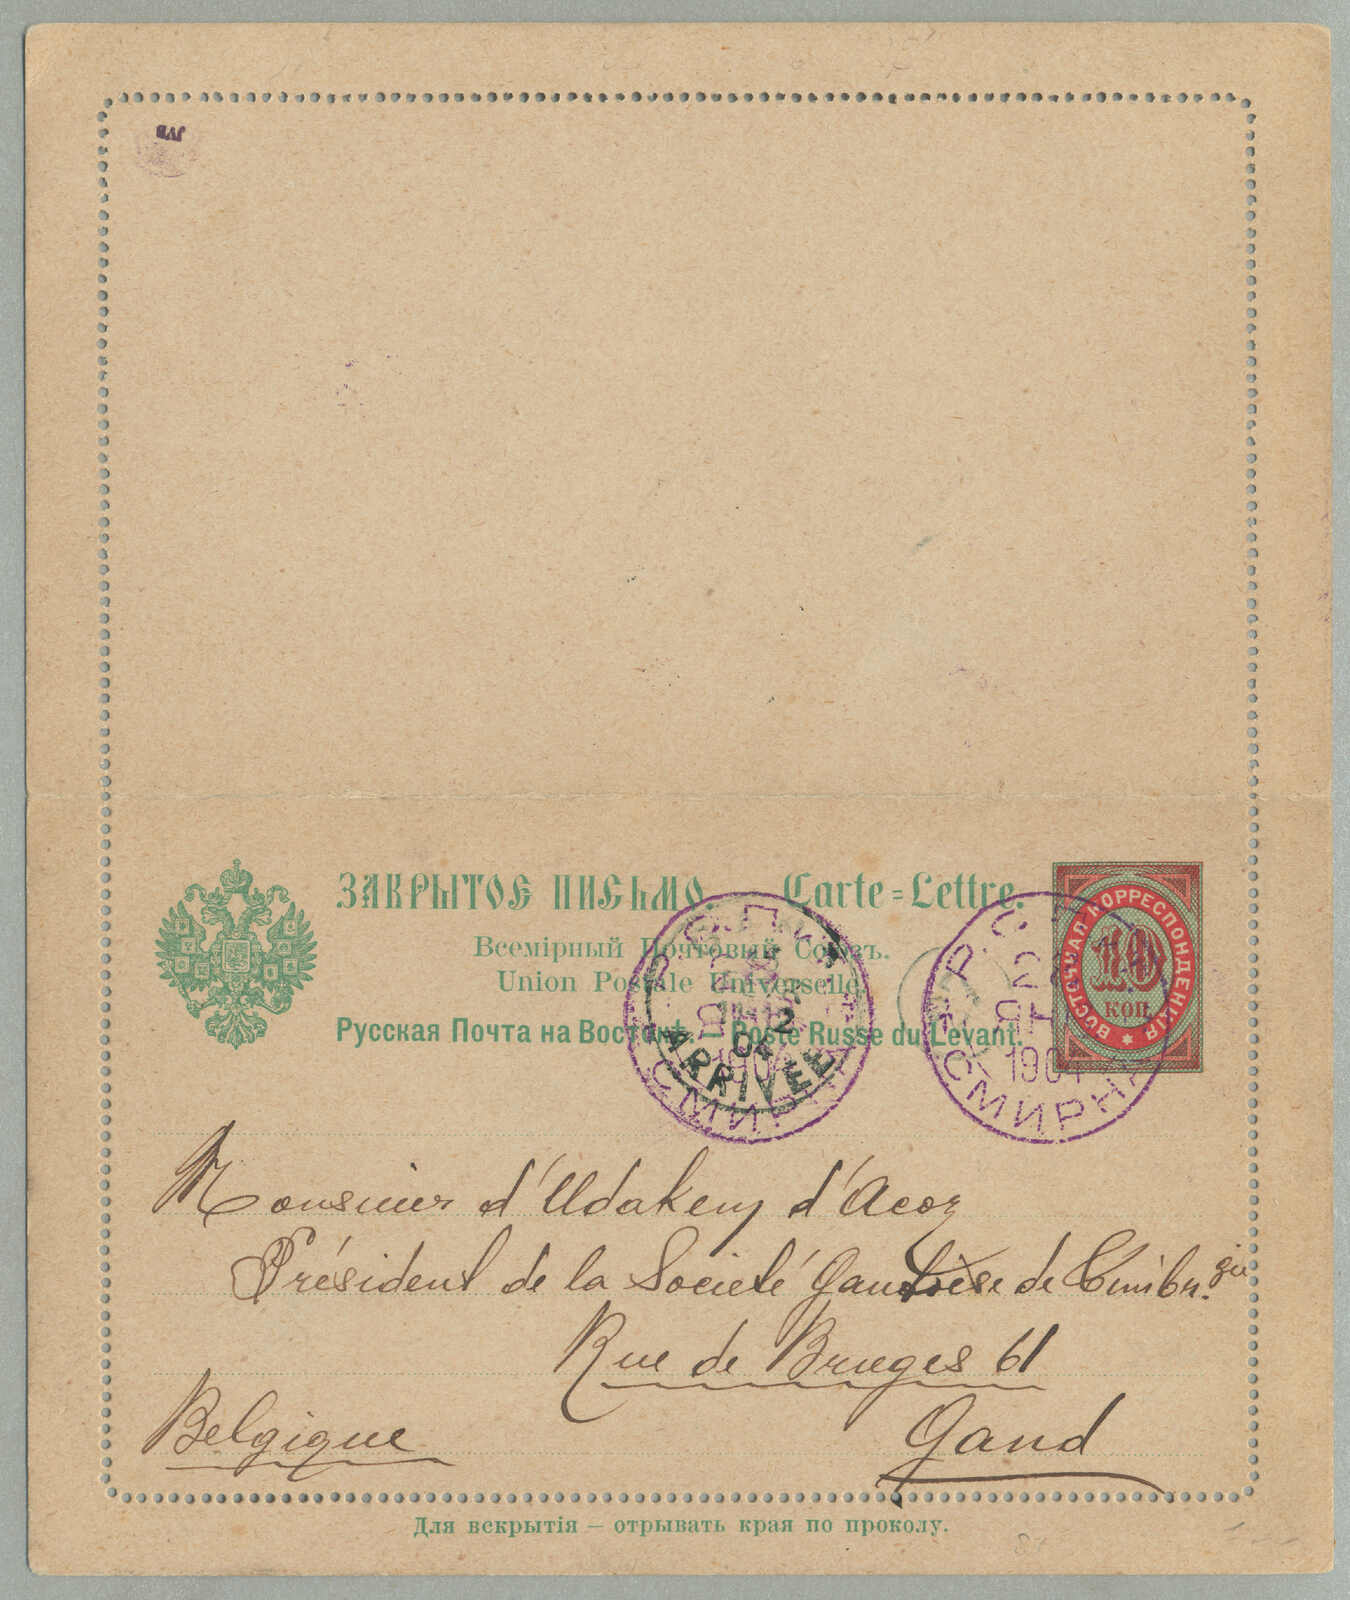 JVB
ЗАКРЫТОЕ ПИСЬМО. Carte-Lettre.
Всемірный Почтовый Союзъ.
Union Postale Universelle
Русская Почта на Востокѣ. Poste Russe du Levant.
ВОСТОЧНАЯ КОРРЕСПОНДЕНЦІЯ
10
КОП.
Р.О.П.и.Т.
ЯНВ
1904
СМИРНА
2
04
ARRIVEE
Р.О.
ЯНВ
1904
СМИРНА
Monsieur d'Udekem d'Acoz
Président de la Societé Gantoise de
Rue de Bruges 61
Belgique Gand
Для вскрытія – отрывать края по проколу.